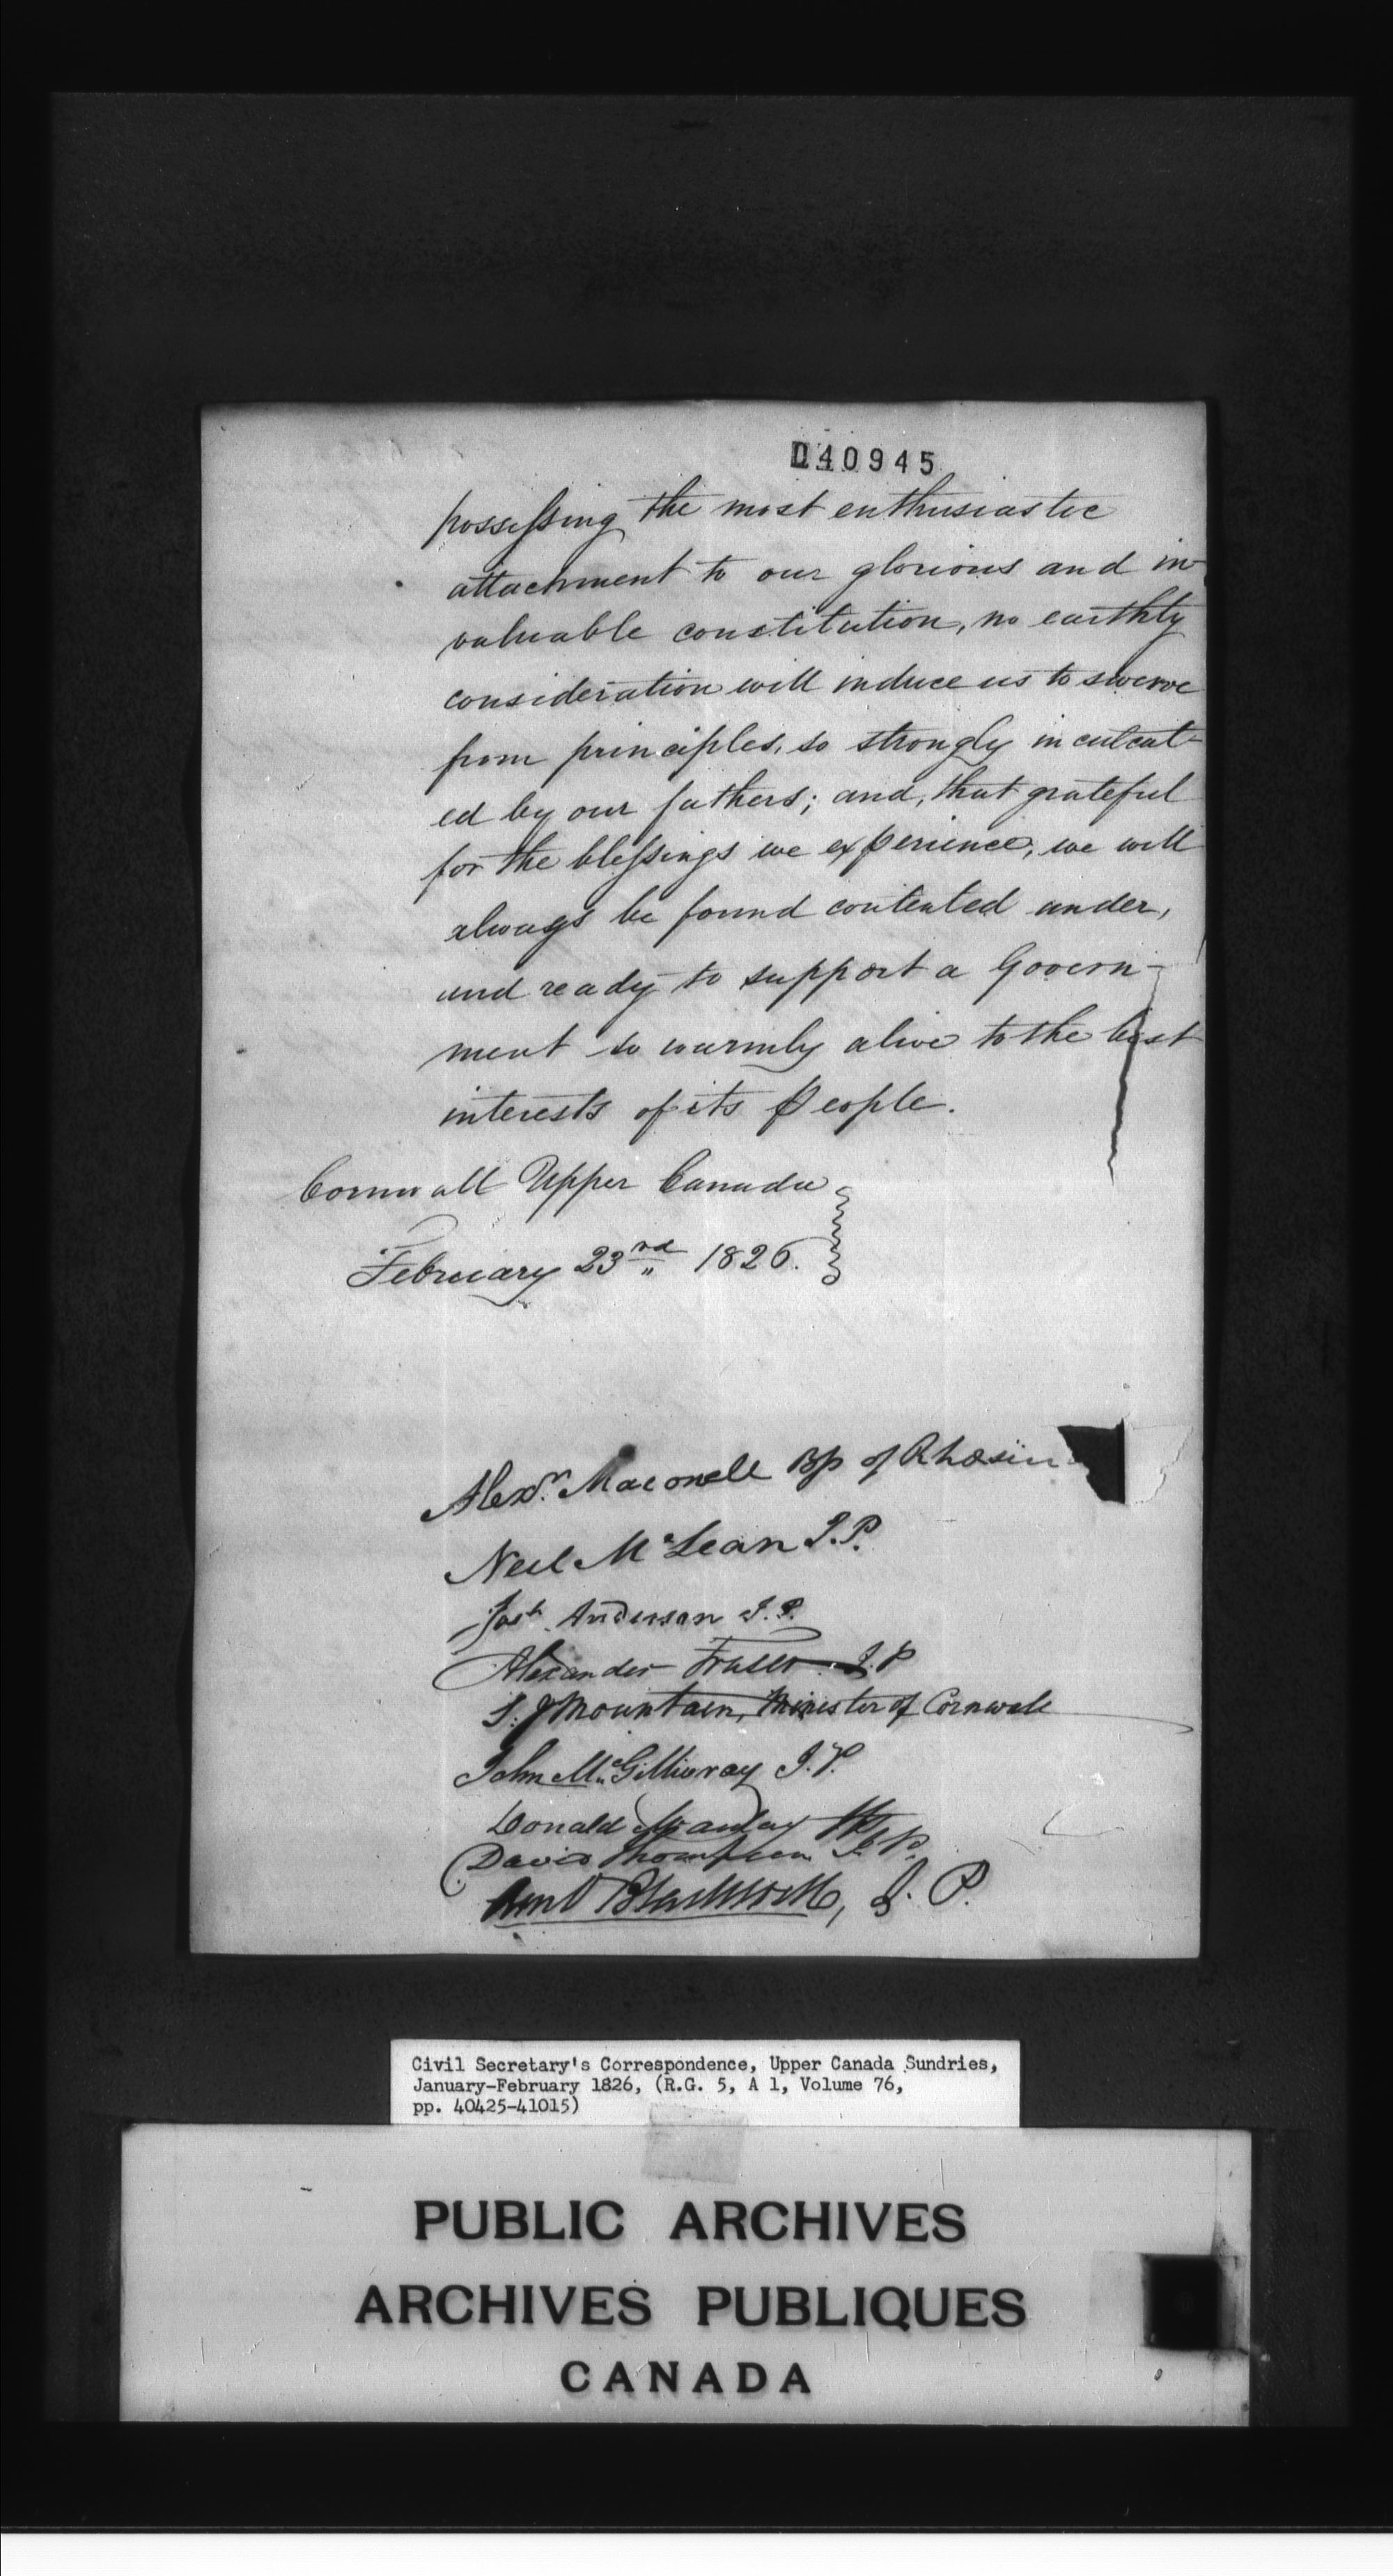 040945
possessing the most enthusiastic
attachment to our glorious and in-
valuable constitution, no earthly
consideration will induce us to swerve
from principles, so strongly inculcat-
ed by our fathers; and, that grateful
for the blessings we experience, we will
always be found contented under,
and ready to support a Govern-
ment so warmly alive to the best
interests of its People.
Cornwall Upper Canada
February 23rd 1826.
Alexr. Macdonell Bp of Rhœsin
Neil McLean J.P.
Josh. Anderson J.P.
Alexander Fraser J.P
S. J Mountain, Minister of Cornwall
John McGillivray J.P.
Donald
David Thompson J.P.
J. P.
Civil Secretary's Correspondence, Upper Canada Sundries,
January-February 1826, (R.G. 5, A 1, Volume 76,
pp. 40425-41015)
PUBLIC ARCHIVES
ARCHIVES PUBLIQUES
CANADA